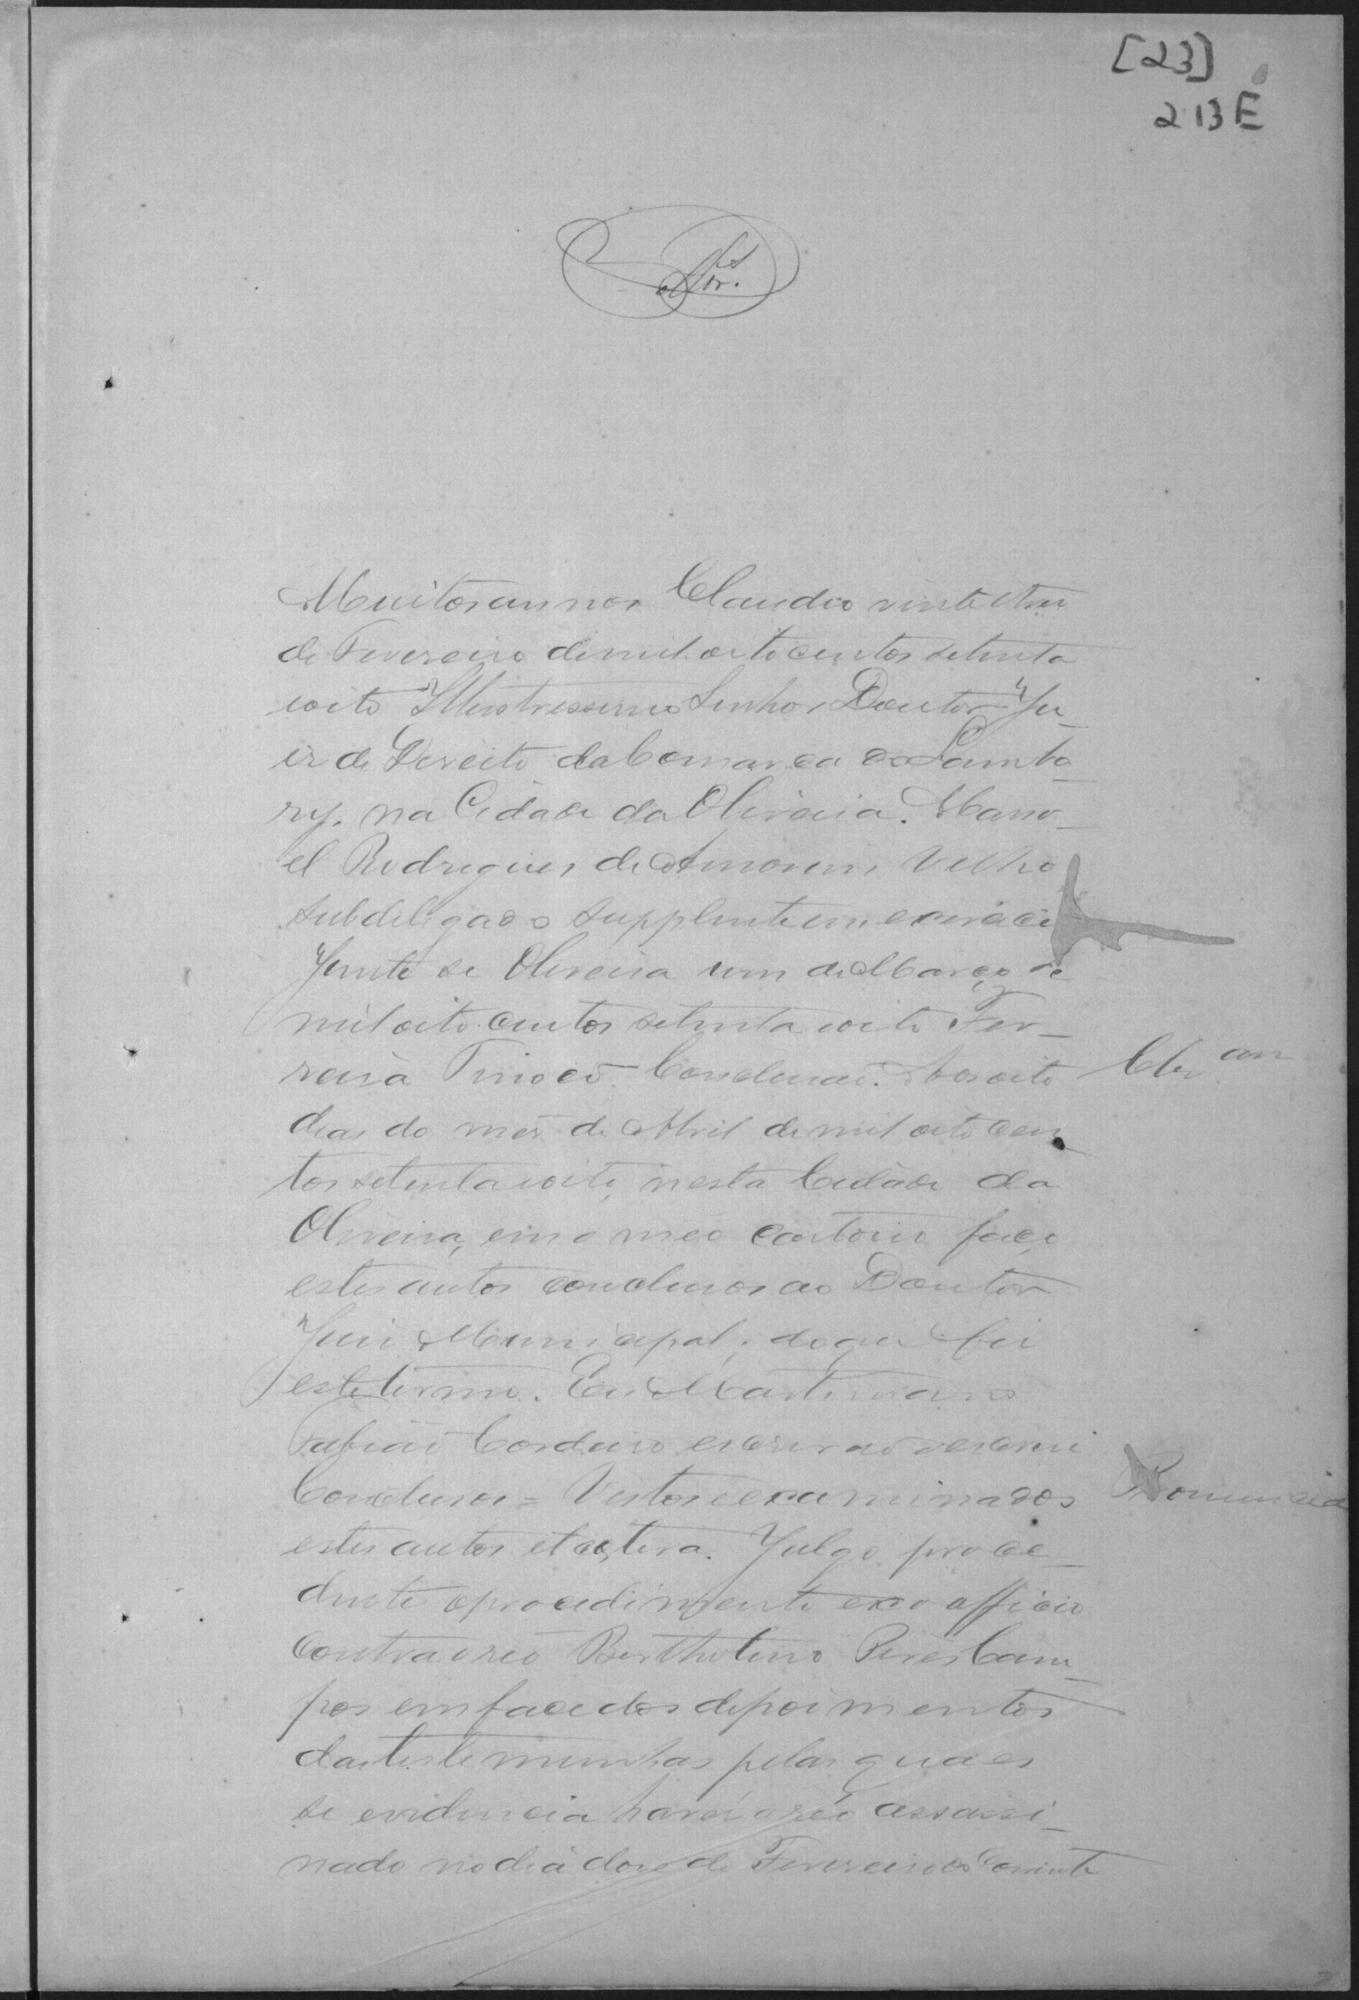 [23]
213E
Muitos annos Claudio vinte tres
de Fevereiro de mil oito centos setenta
e oito Illustrissimo Senhor Doutor Ju-
is de Direito da Comarca do Lamba-
ry, na Cidade da Oliveira. Mano-
el Rodrigues de Amorim Velho
subdelegado supplente em exercicio
Junte se Oliveira um de Março de
mil oito centos setenta e oito Fer-
reira Tinoco. Conclusão. Aos oito
Clsam
dias do mes de Abril de mil oito cen
tos setenta e oito, nesta Cidade da
Oliveira, em o meo cartorio faço
estes autos conclusos ao Doutor
Juis Municipal; do que fis
este termo. Eu Martiniano
Fabião Cordeiro escrivão escrevi
Conclusos = Vistos e examinados
Pronuncia
estes autos etcetera. Julgo proce-
dente o procedimento exo officio
contra o reo Bertholino Pires Cam-
pos em face dos depoimentos
das testemunhas pelas quaes
se evidencia haver o réo assassi-
nado no dia dose de Fevereiro do Corrente